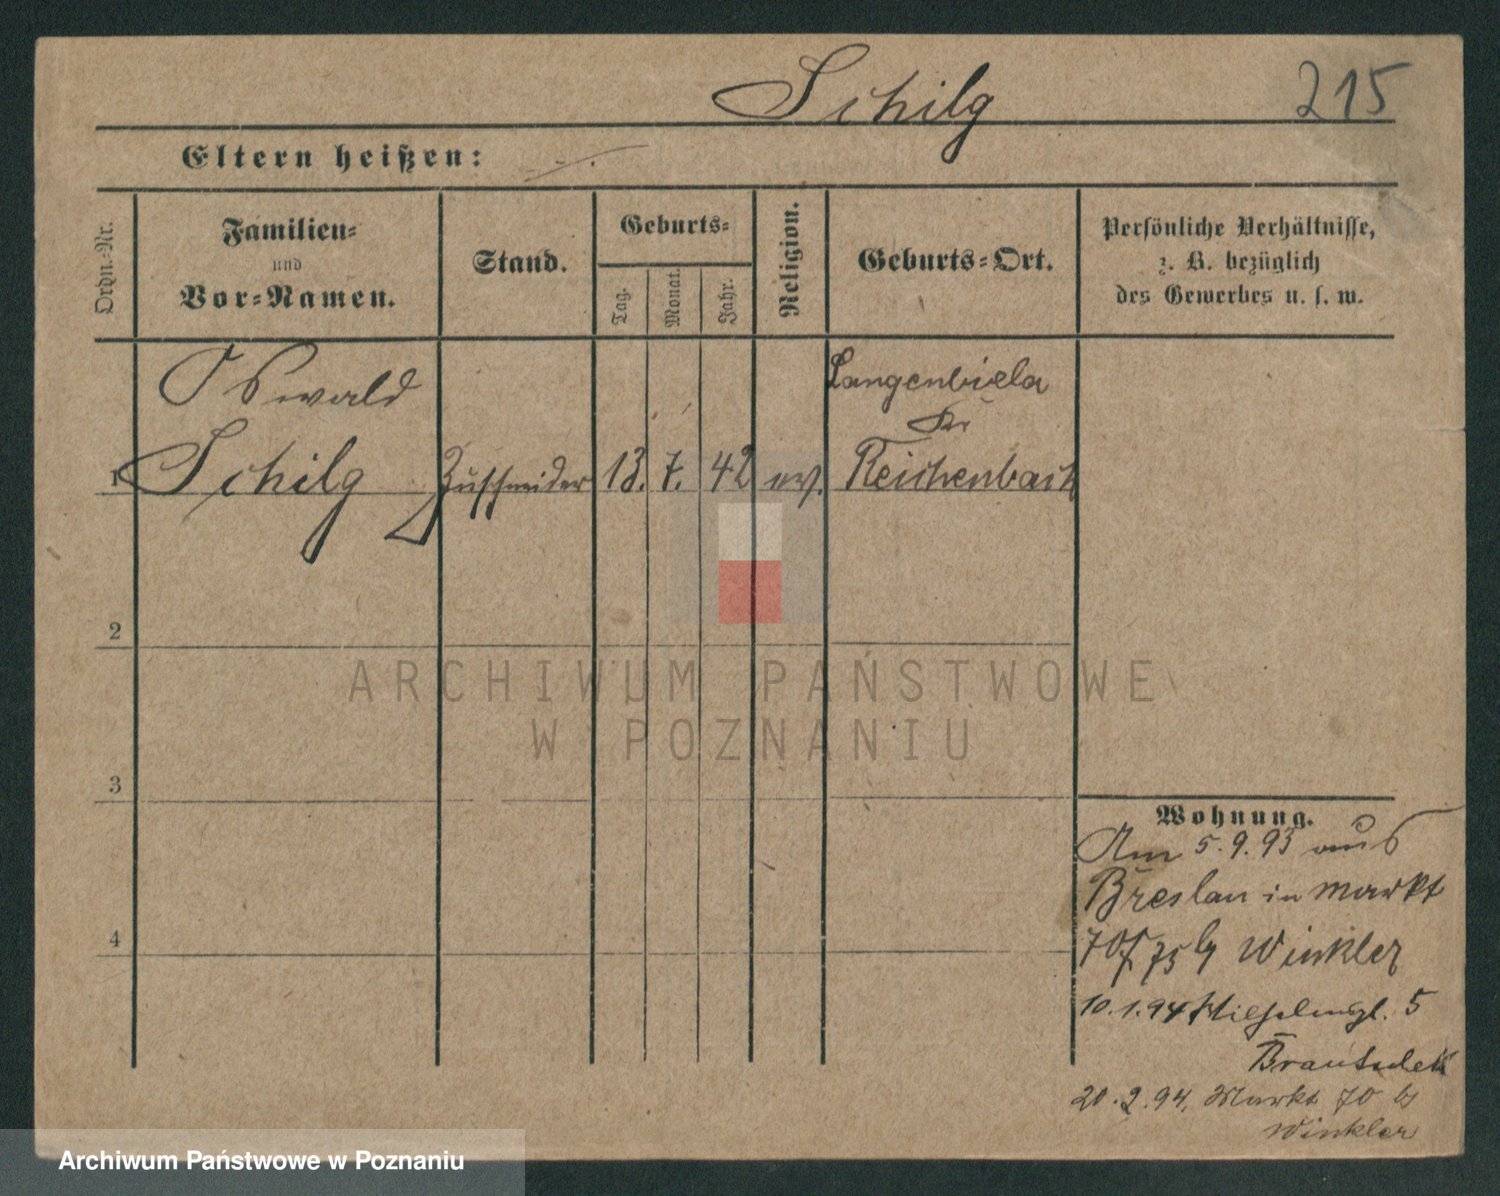 Schilg
215
Eltern heißen: -/-.
Ordn.-Nr.
Familien-
und
Vor-Namen.
Stand.
Geburts-
Tag.
Monat.
Jahr.
Religion.
Geburts-Ort.
Persönliche Verhältnisse,
z. B. bezüglich
des Gewerbes u. s. w.
Oswald
Schilg
1
Zuschneider
13. 7. 42
ev.
Langenbiela
Kr
Reichenbach
2
3
4
Wohnung.
Am 5.9.93 aus
Breslau in Markt
70 b/ Winkler
10.1.94 5
20.2.94. Markt 70 b/
Winkler
ARCHIWUM PAŃSTWOWE
W POZNANIU
Archiwum Państwowe w Poznaniu